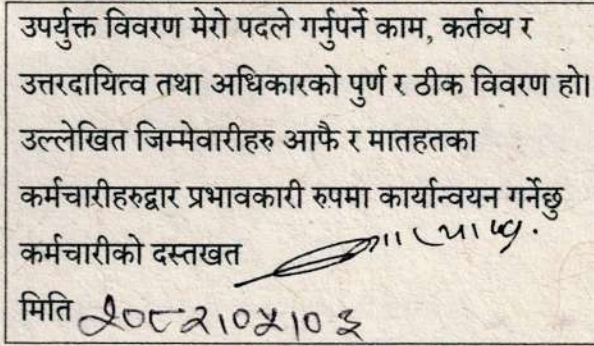 उपर्युक्त विवरण मेरो पदले गर्नुपर्ने काम, कर्तव्य र
उत्तरदायित्व तथा अधिकारको पुर्ण र ठीक विवरण हो।
उल्लेखित जिम्मेवारीहरु आफै र मातहतका
कर्मचारीहरुद्वार प्रभावकारी रुपमा कार्यान्वयन गर्नेछु
कर्मचारीको दस्तखत
मिति २०८२।०५।०३